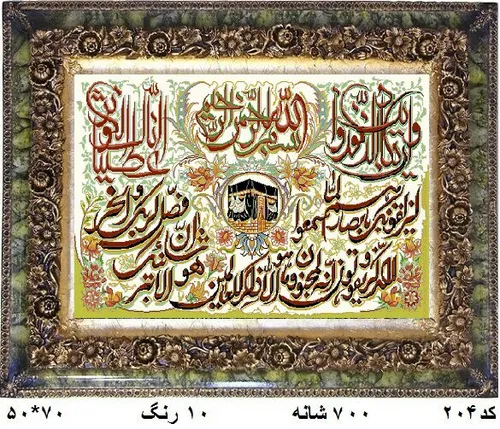 بسم الله الرحمن الرحیم
وان یکاد الذین کفروا
لیزلقونک بابصارهم لما سمعوا
الذکر و یقولون انه لمجنون و ما هو الا ذکر للعالمین
انا اعطیناک الکوثر
فصل لربک وانحر
ان شانئک
هو الابتر
کد۲۰۴ ۷۰۰ شانه ۱۰ رنگ ۵۰*۷۰